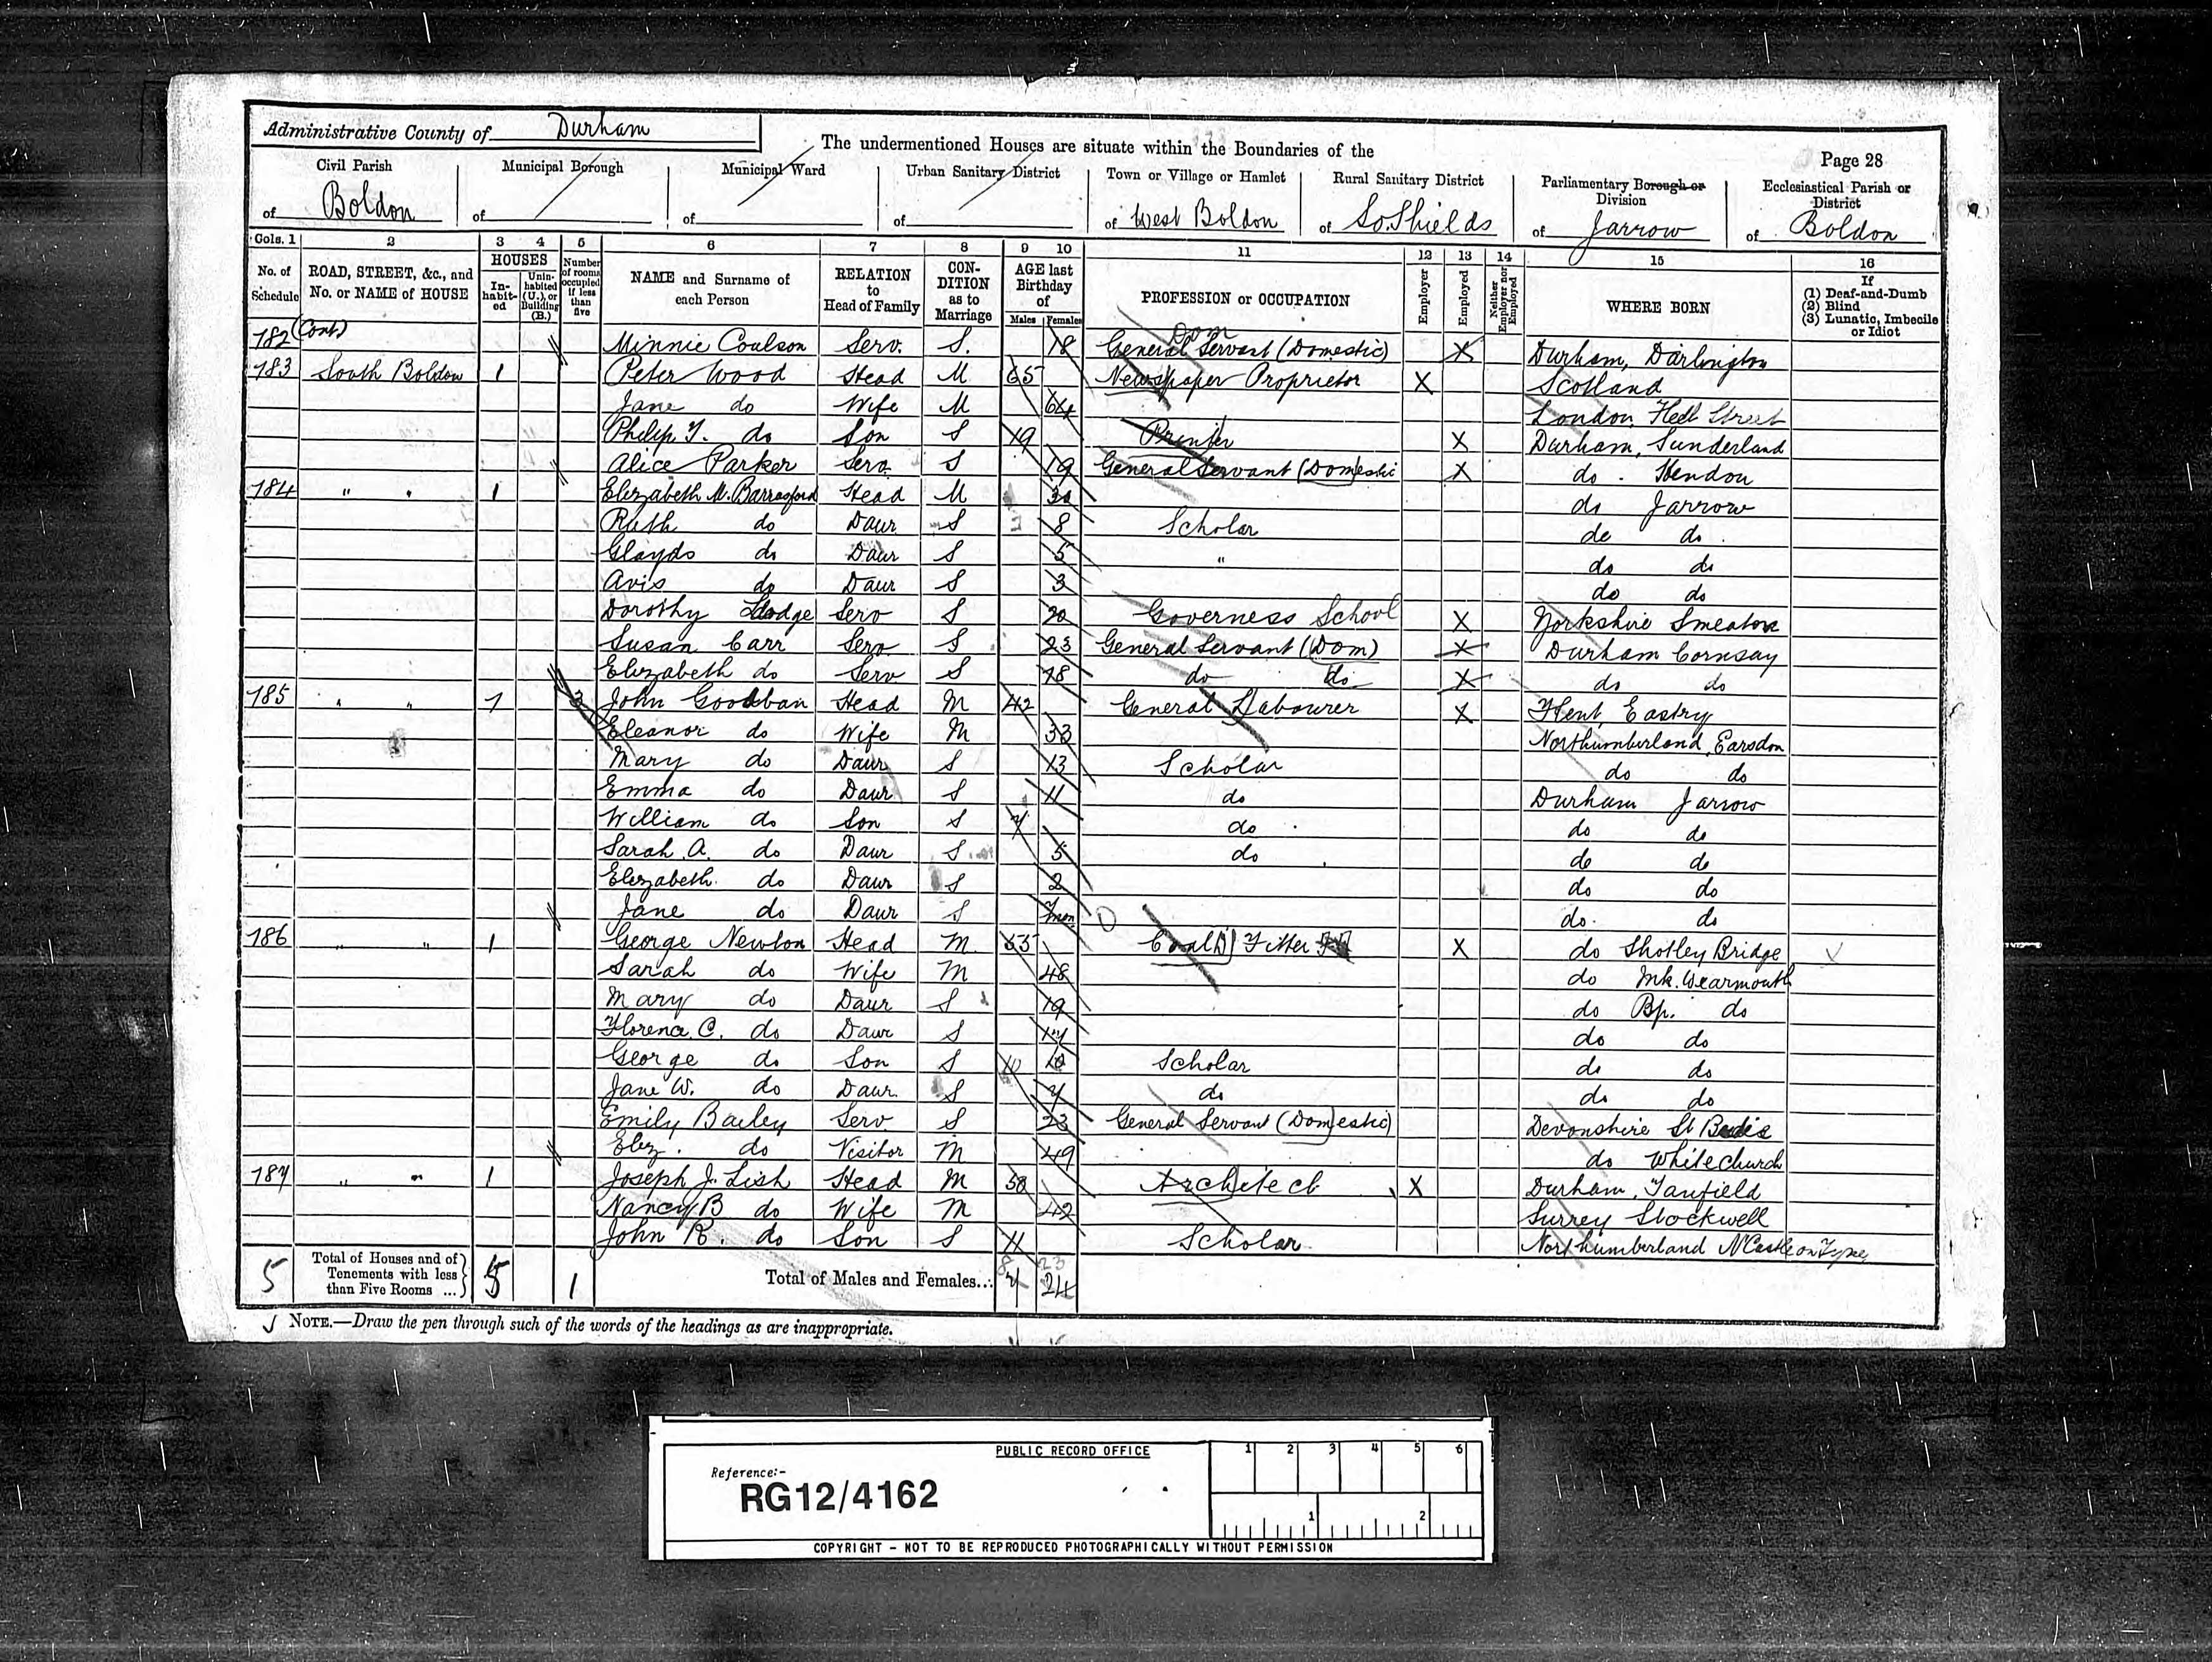 Administrative County of Durham
The undermentioned Houses are situate within the Boundaries of the
Page 28
Civil Parish of Boldon
Municipal Borough of
Municipal Ward of
Urban Sanitary District of
Town or Village or Hamlet of West Boldon
Rural Sanitary District of So. Shields
Parliamentary Borough or Division of Jarrow
Ecclesiastical Parish or District of Boldon
Cols. 1 2 3 4 5 6 7 8 9 10 11 12 13 14 15 16
No. of Schedule
ROAD, STREET, &c., and No. or NAME of HOUSE
HOUSES
In-habit-ed
Unin-habited (U.), or Building (B.)
Number of rooms occupied if less than five
NAME and Surname of each Person
RELATION to Head of Family
CON-DITION as to Marriage
AGE last Birthday of
Males Females
PROFESSION or OCCUPATION
Employer
Employed
Neither Employer nor Employed
WHERE BORN
If
(1) Deaf-and-Dumb
(2) Blind
(3) Lunatic, Imbecile or Idiot
182 (Cont) Minnie Coulson Serv. S. 18 General Servant (Domestic) Dom X Durham, Darlington
183 South Boldon 1 Peter Wood Head M 65 Newspaper Proprietor X Scotland
Jane do Wife M 64 London, Fleet Street
Philip Y. do Son S 19 Printer X Durham, Sunderland
Alice Parker Serv. S 19 General Servant (Domestic X do. Hendon
184 " " 1 Elizabeth M. Barrasford Head M 30 do Jarrow
Ruth do Daur S 8 Scholar do do.
Glayds do Daur S 5 " do do
Avis do Daur S 3 do do
Dorothy Hodge Serv S 20 Governess School X Yorkshire Smeaton
Susan Carr Serv S 23 General Servant (Dom) X Durham Cornsay
Elizabeth do Serv S 18 do do X do do
185 " " 1 3 John Goodban Head M 42 General Labourer X Kent, Eastry
Eleanor do Wife M 33 Northumberland, Earsdon
Mary do Daur S 13 Scholar do do
Emma do Daur S 11 do Durham Jarrow
William do Son S 7 do do do
Sarah A. do Daur S 5 do do do
Elizabeth do Daur S 2 do do
Jane do Daur S 7 mon do. do
186 " " 1 George Newton Head M. 53 Coal Fitter X do Shotley Bridge
Sarah do Wife M 48 do Mk. Wearmouth
Mary do Daur S 19 do Bp. do
Florence C. do Daur S 17 do do
George do Son S 10 Scholar do do
Jane W. do Daur. S 7 do do do
Emily Bailey Serv S 23 General Servant (Domestic) Devonshire St
Eliz. do Visitor M 49 do Whitechurch
187 " " 1 Joseph J. Lish Head M 50 Architect X Durham, Tanfield
Nancy B do Wife M 42 Surrey Stockwell
John R. do Son S 11 Scholar Northumberland NCastle on Tyne
5 Total of Houses and of Tenements with less than Five Rooms ... 5 1 Total of Males and Females... 7 24
8 23
NOTE.—Draw the pen through such of the words of the headings as are inappropriate.
PUBLIC RECORD OFFICE
1 2 3 4 5 6
Reference:-
RG12/4162
1 2
COPYRIGHT - NOT TO BE REPRODUCED PHOTOGRAPHICALLY WITHOUT PERMISSION